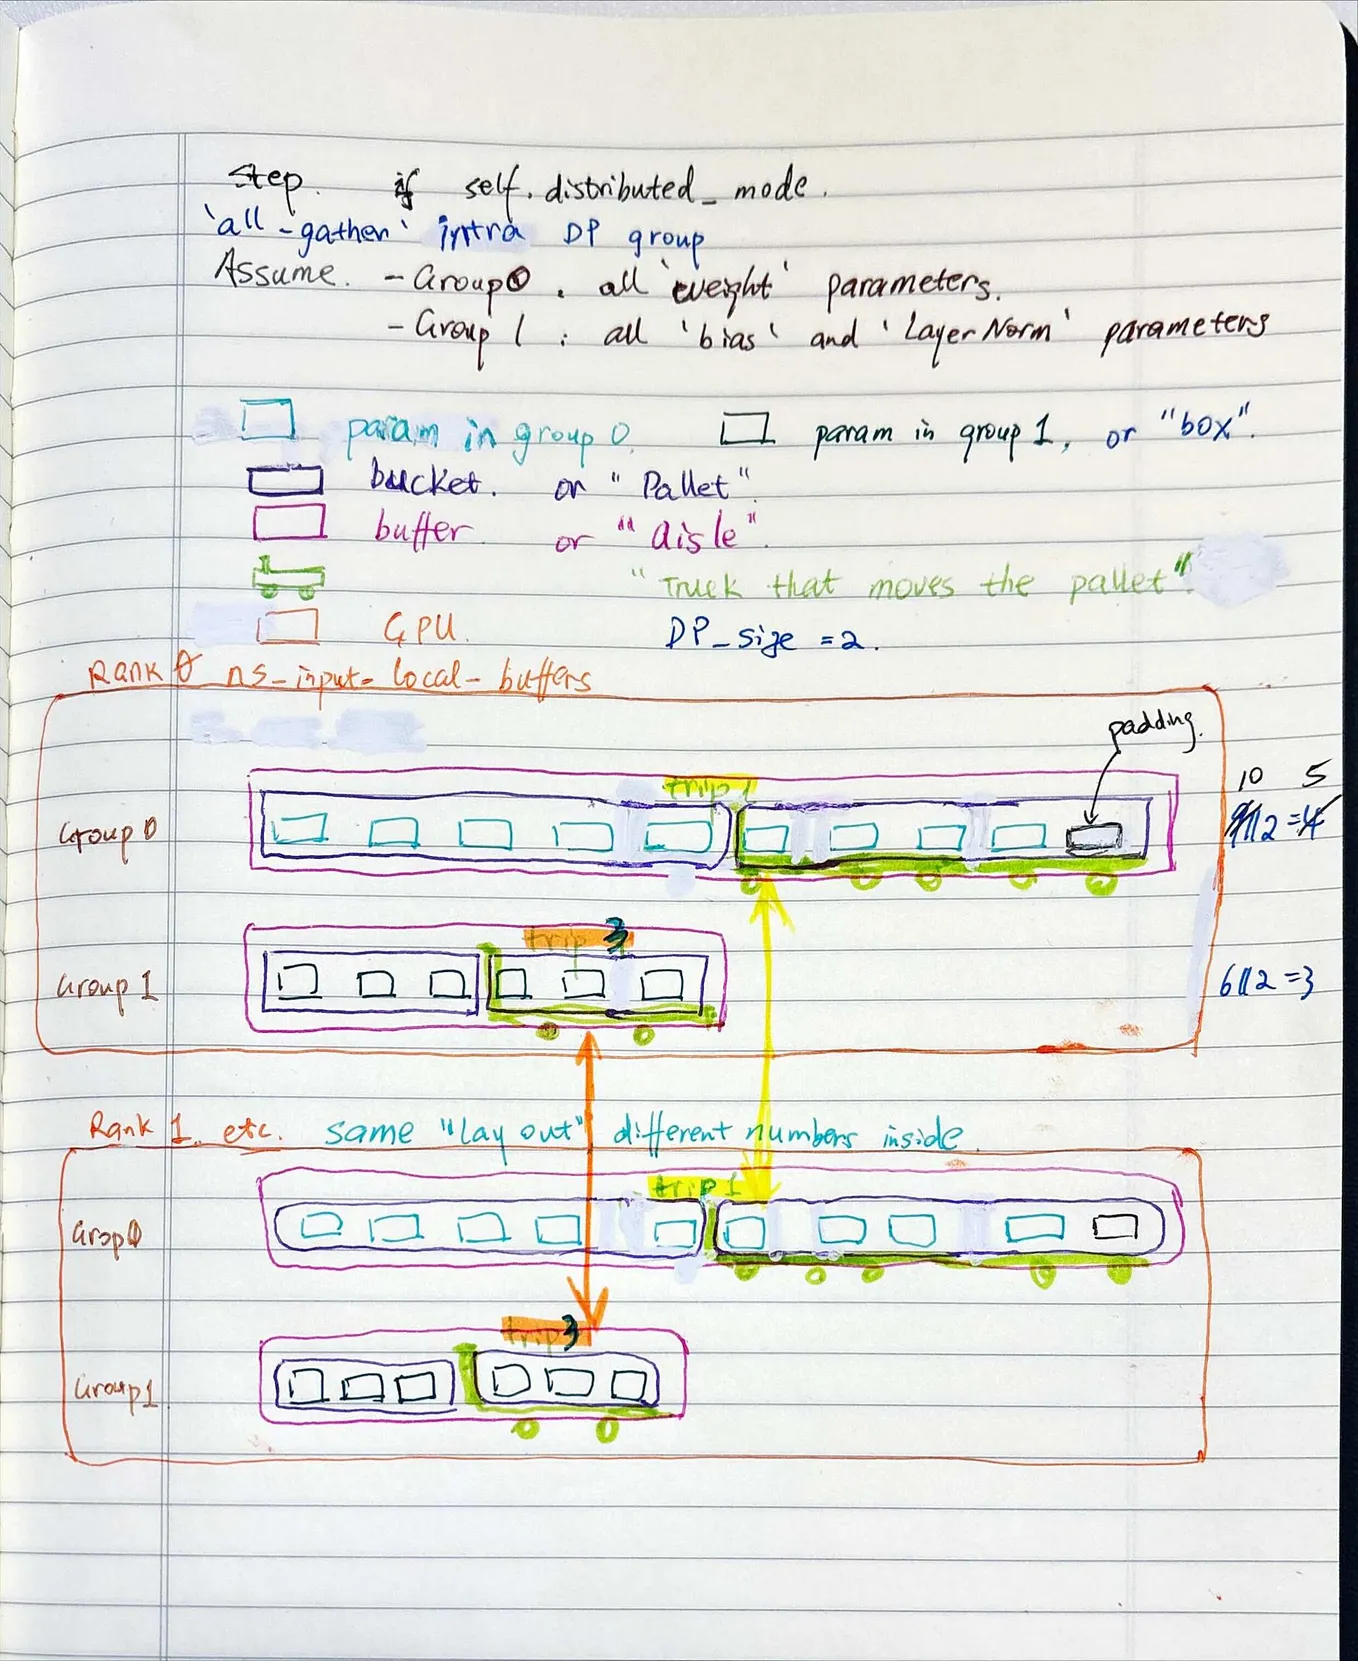 Step. if self.distributed_mode.
'all-gather' intra DP group
Assume. - Group 0. all 'weight' parameters.
- Group 1: all 'bias' and 'LayerNorm' parameters
param in group 0 param in group 1, or "box".
bucket. or "Pallet".
buffer or "aisle".
"Truck that moves the pallet".
GPU. DP_size = 2.
Rank 0 ns_input_local_buffers
padding.
trip 1
10 5
Group 0
//2 =
trip 3
Group 1
6//2 = 3
Rank 1. etc. same "lay out" different numbers inside.
trip 1
Grop 0
trip 3
Group 1